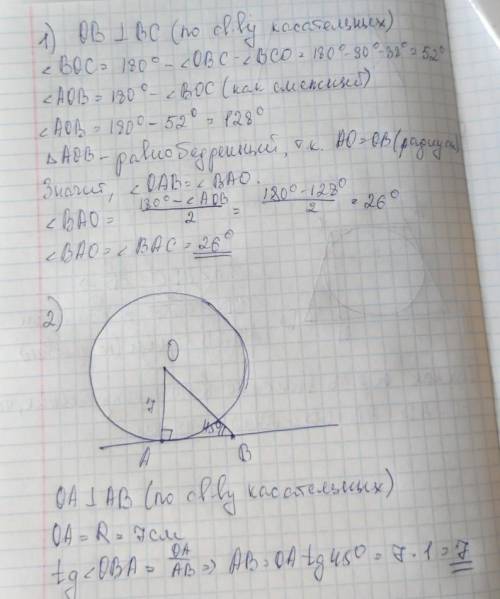 1) OB ⊥ BC (по св-ву касательных)
∠BOC = 180° - ∠OBC - ∠BCO = 180° - 90° - 38° = 52°
∠AOB = 180° - ∠BOC (как смежный)
∠AOB = 180° - 52° = 128°
△AOB - равнобедренный, т.к. AO = OB (радиусы)
Значит, ∠OAB = ∠BAO.
∠BAO = (180° - ∠AOB)/2 = (180° - 128°)/2 = 26°
∠BAO = ∠BAC = 26°
2)
O
7
45°
A B
OA ⊥ AB (по св-ву касательных)
OA = R = 7 см
tg ∠OBA = OA/AB => AB = OA tg 45° = 7 · 1 = 7